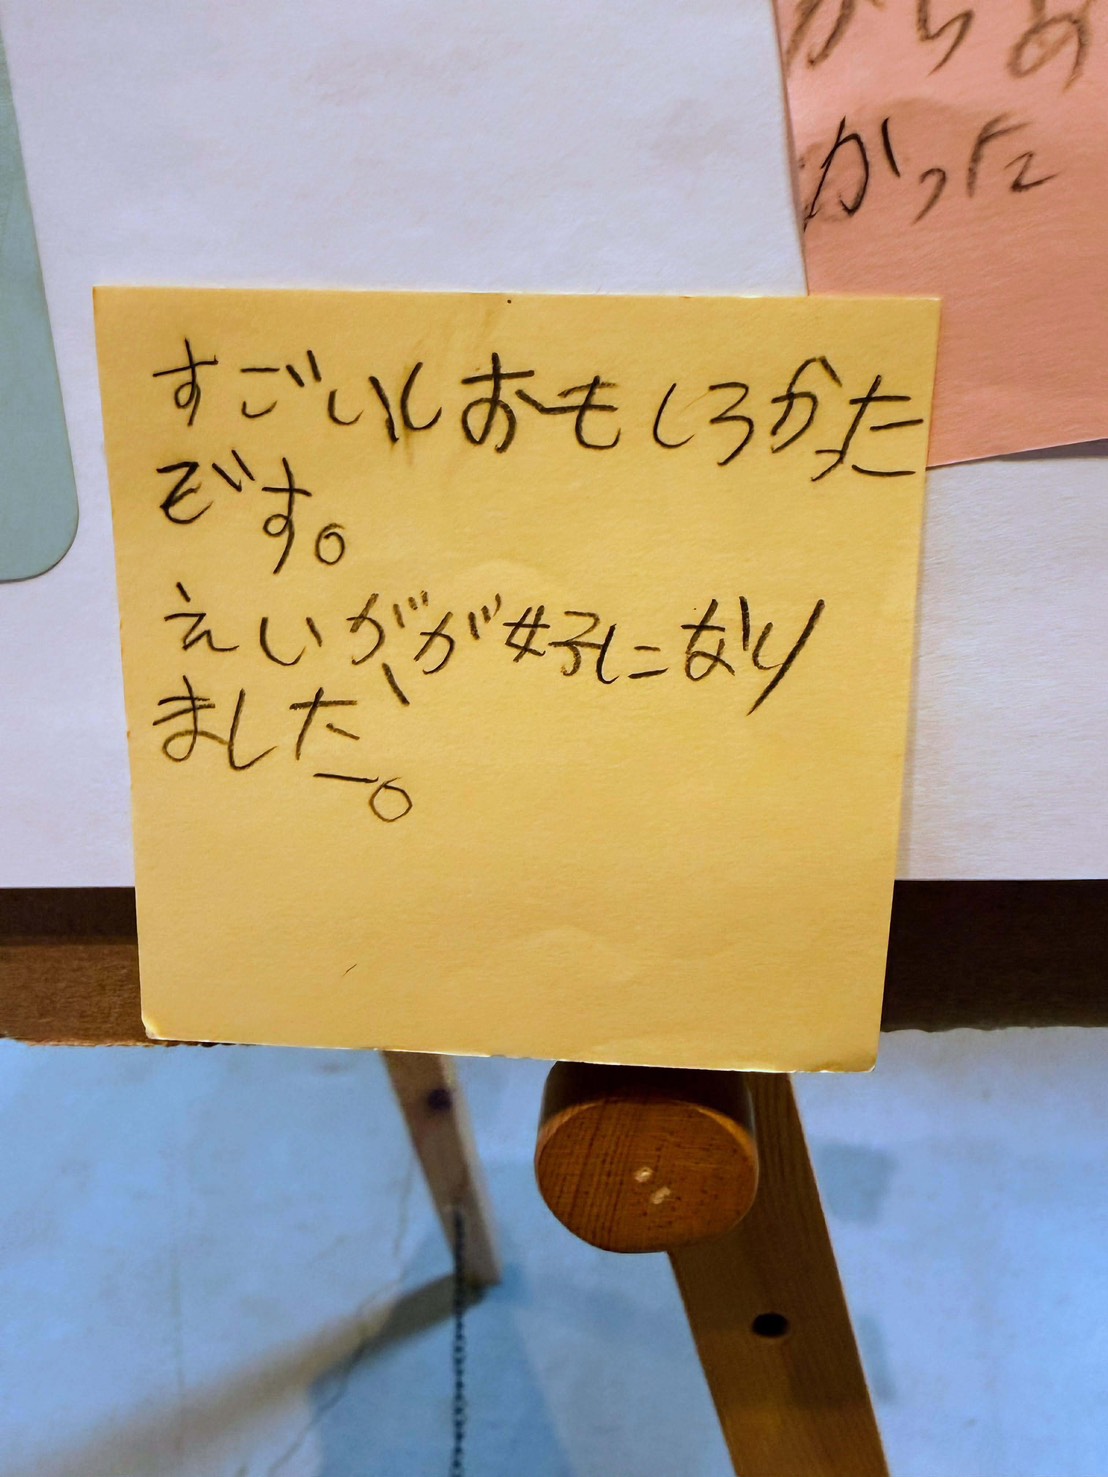 からあ
かった
すごいしおもしろかった
です。
えいがが好になり
ました。